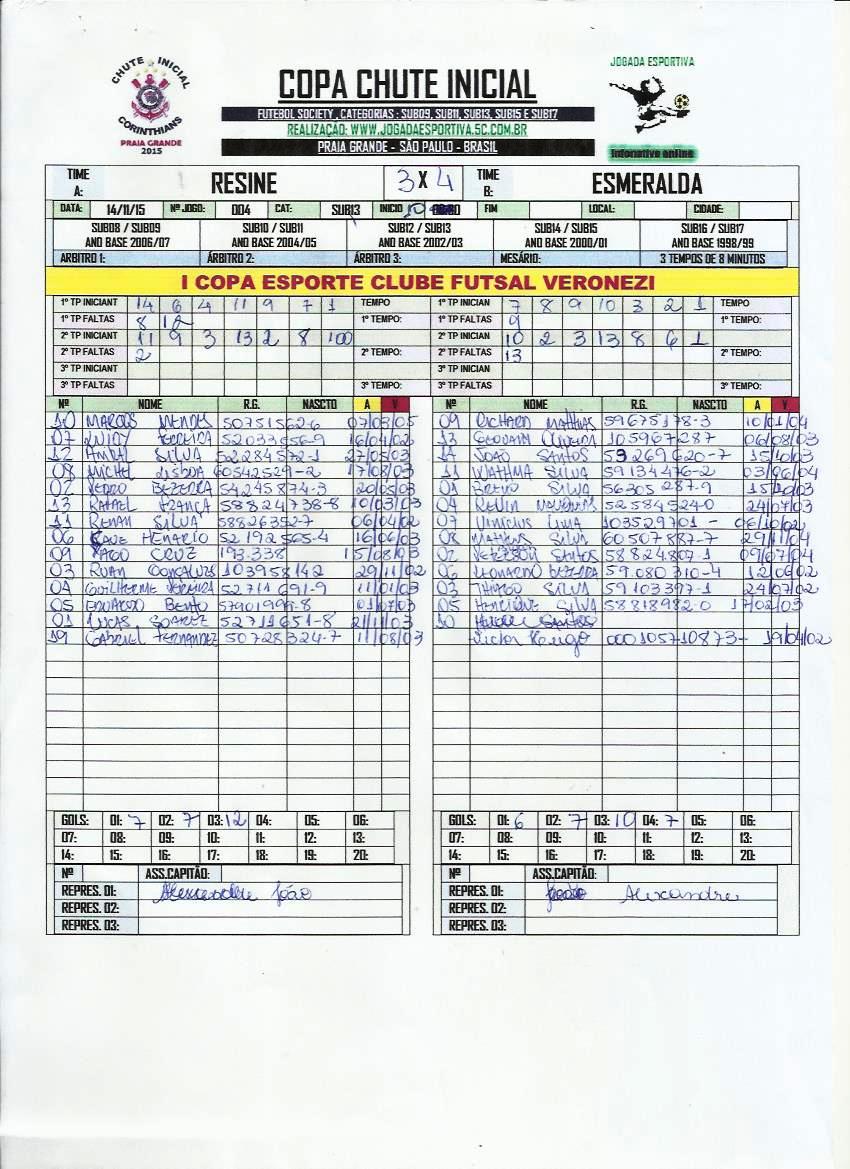 CHUTE INICIAL
CORINTHIANS
PRAIA GRANDE
2015
COPA CHUTE INICIAL
FUTEBOL SOCIETY , CATEGORIAS : SUB09, SUB11, SUB13, SUB15 E SUB17
REALIZAÇÃO: WWW.JOGADAESPORTIVA.5C.COM.BR
PRAIA GRANDE - SÃO PAULO - BRASIL
JOGADA ESPORTIVA
intonative online
TIME A: RESINE 3 X 4 TIME B: ESMERALDA
DATA: 14/11/15 Nº JOGO: 004 CAT: SUB13 INICIO 10 FIM LOCAL: CIDADE:
SUB08 / SUB09 SUB10 / SUB11 SUB12 / SUB13 SUB14 / SUB15 SUB16 / SUB17
ANO BASE 2006/07 ANO BASE 2004/05 ANO BASE 2002/03 ANO BASE 2000/01 ANO BASE 1998/99
ARBITRO 1: ÁRBITRO 2: ÁRBITRO 3: MESÁRIO: 3 TEMPOS DE 8 MINUTOS
I COPA ESPORTE CLUBE FUTSAL VERONEZI
1º TP INICIANT 14 6 4 11 9 7 1 TEMPO 1º TP INICIAN 7 8 9 10 3 2 1 TEMPO
1º TP FALTAS 8 12 1º TEMPO: 1º TP FALTAS 9 1º TEMPO:
2º TP INICIANT 11 9 3 13 2 8 100 2º TP INICIAN 10 2 3 13 8 6 1
2º TP FALTAS 2 2º TEMPO: 2º TP FALTAS 13 2º TEMPO:
3º TP INICIANT 3º TP INICIAN
3º TP FALTAS 3º TEMPO: 3º TP FALTAS 3º TEMPO:
Nº NOME R.G. NASCTO A V Nº NOME R.G. NASCTO A V
10 MARCOS MENDES 50751562-6 07/03/05 09 RICHARD MATHIAS 59675178-3 10/01/04
07 FERREIRA 52033656-9 16/04/02 13 GEOVANI OLIVEIRA 105967287 06/08/03
12 SILVA 52284572-1 27/05/03 14 JOÃO SANTOS 53269620-7 15/10/03
08 MICHEL LISBOA 60542529-2 17/08/03 11 SILVA 59134476-2 03/06/04
02 PEDRO BEZERRA 54245874-3 20/05/03 01 BRENO SILVA 56305287-9 15/10/03
13 RAFAEL FRANÇA 58824738-8 10/03/03 04 52584524-0 24/07/03
11 RENAN SILVA 58826352-7 06/04/02 07 VINICIUS LIMA 103529701 - 06/10/02
06 KAUE 52192565-4 16/06/03 08 MATHEUS SILVA 60507887-7 29/11/04
09 CRUZ 193.338 15/08/03 02 SANTOS 58824807-1 09/07/04
03 RUAN GONÇALVES 103958142 29/11/02 06 LEONARDO BEZERRA 59.080310-4 12/06/02
04 GUILHERME PEREIRA 52711691-9 11/01/03 03 THIAGO SILVA 59103397-1 24/07/02
05 EDUARDO BENTO 57901999-8 01/07/03 05 HENRIQUE SILVA 58818982-0 17/02/03
01 LUCAS SOAREZ 52711651-8 21/11/03 10
19 GABRIEL FERNANDEZ 50728324-7 11/08/03 Victor 000105710873- 19/04/02
GOLS: 01: 7 02: 7 03: 12 04: 05: 06: GOLS: 01: 6 02: 7 03: 10 04: 7 05: 06:
07: 08: 09: 10: 11: 12: 13: 07: 08: 09: 10: 11: 12: 13:
14: 15: 16: 17: 18: 19: 20: 14: 15: 16: 17: 18: 19: 20:
Nº ASS.CAPITÃO: Nº ASS.CAPITÃO:
REPRES. 01: João REPRES. 01: Alexandre
REPRES. 02: REPRES. 02:
REPRES. 03: REPRES. 03: